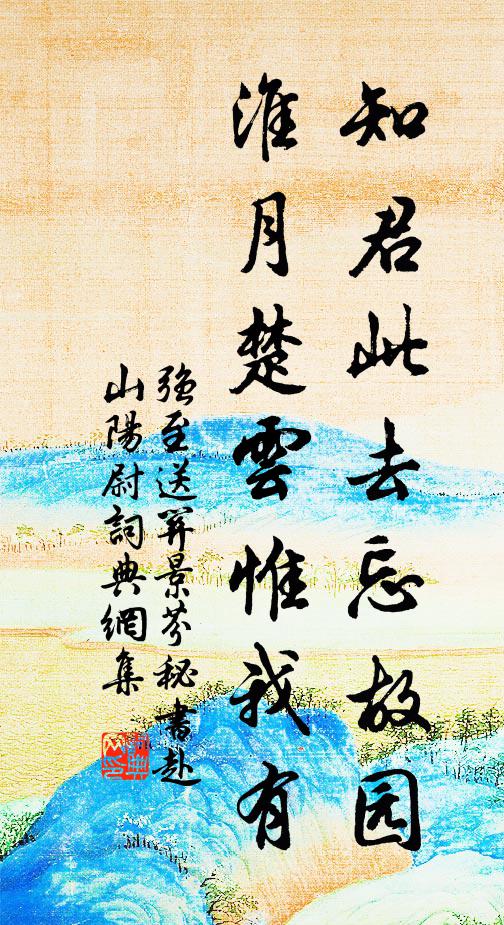 知君此去忘故园
淮月楚雲惟我有
强至送羿景芬秘書赴
山陽尉詞典網集